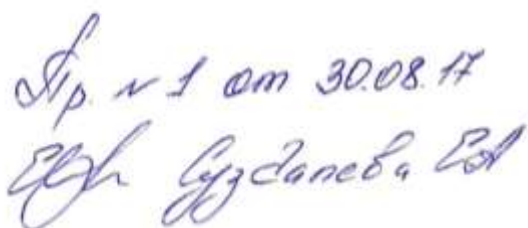 Пр. № 1 от 30.08.17
Суздалева ЕА